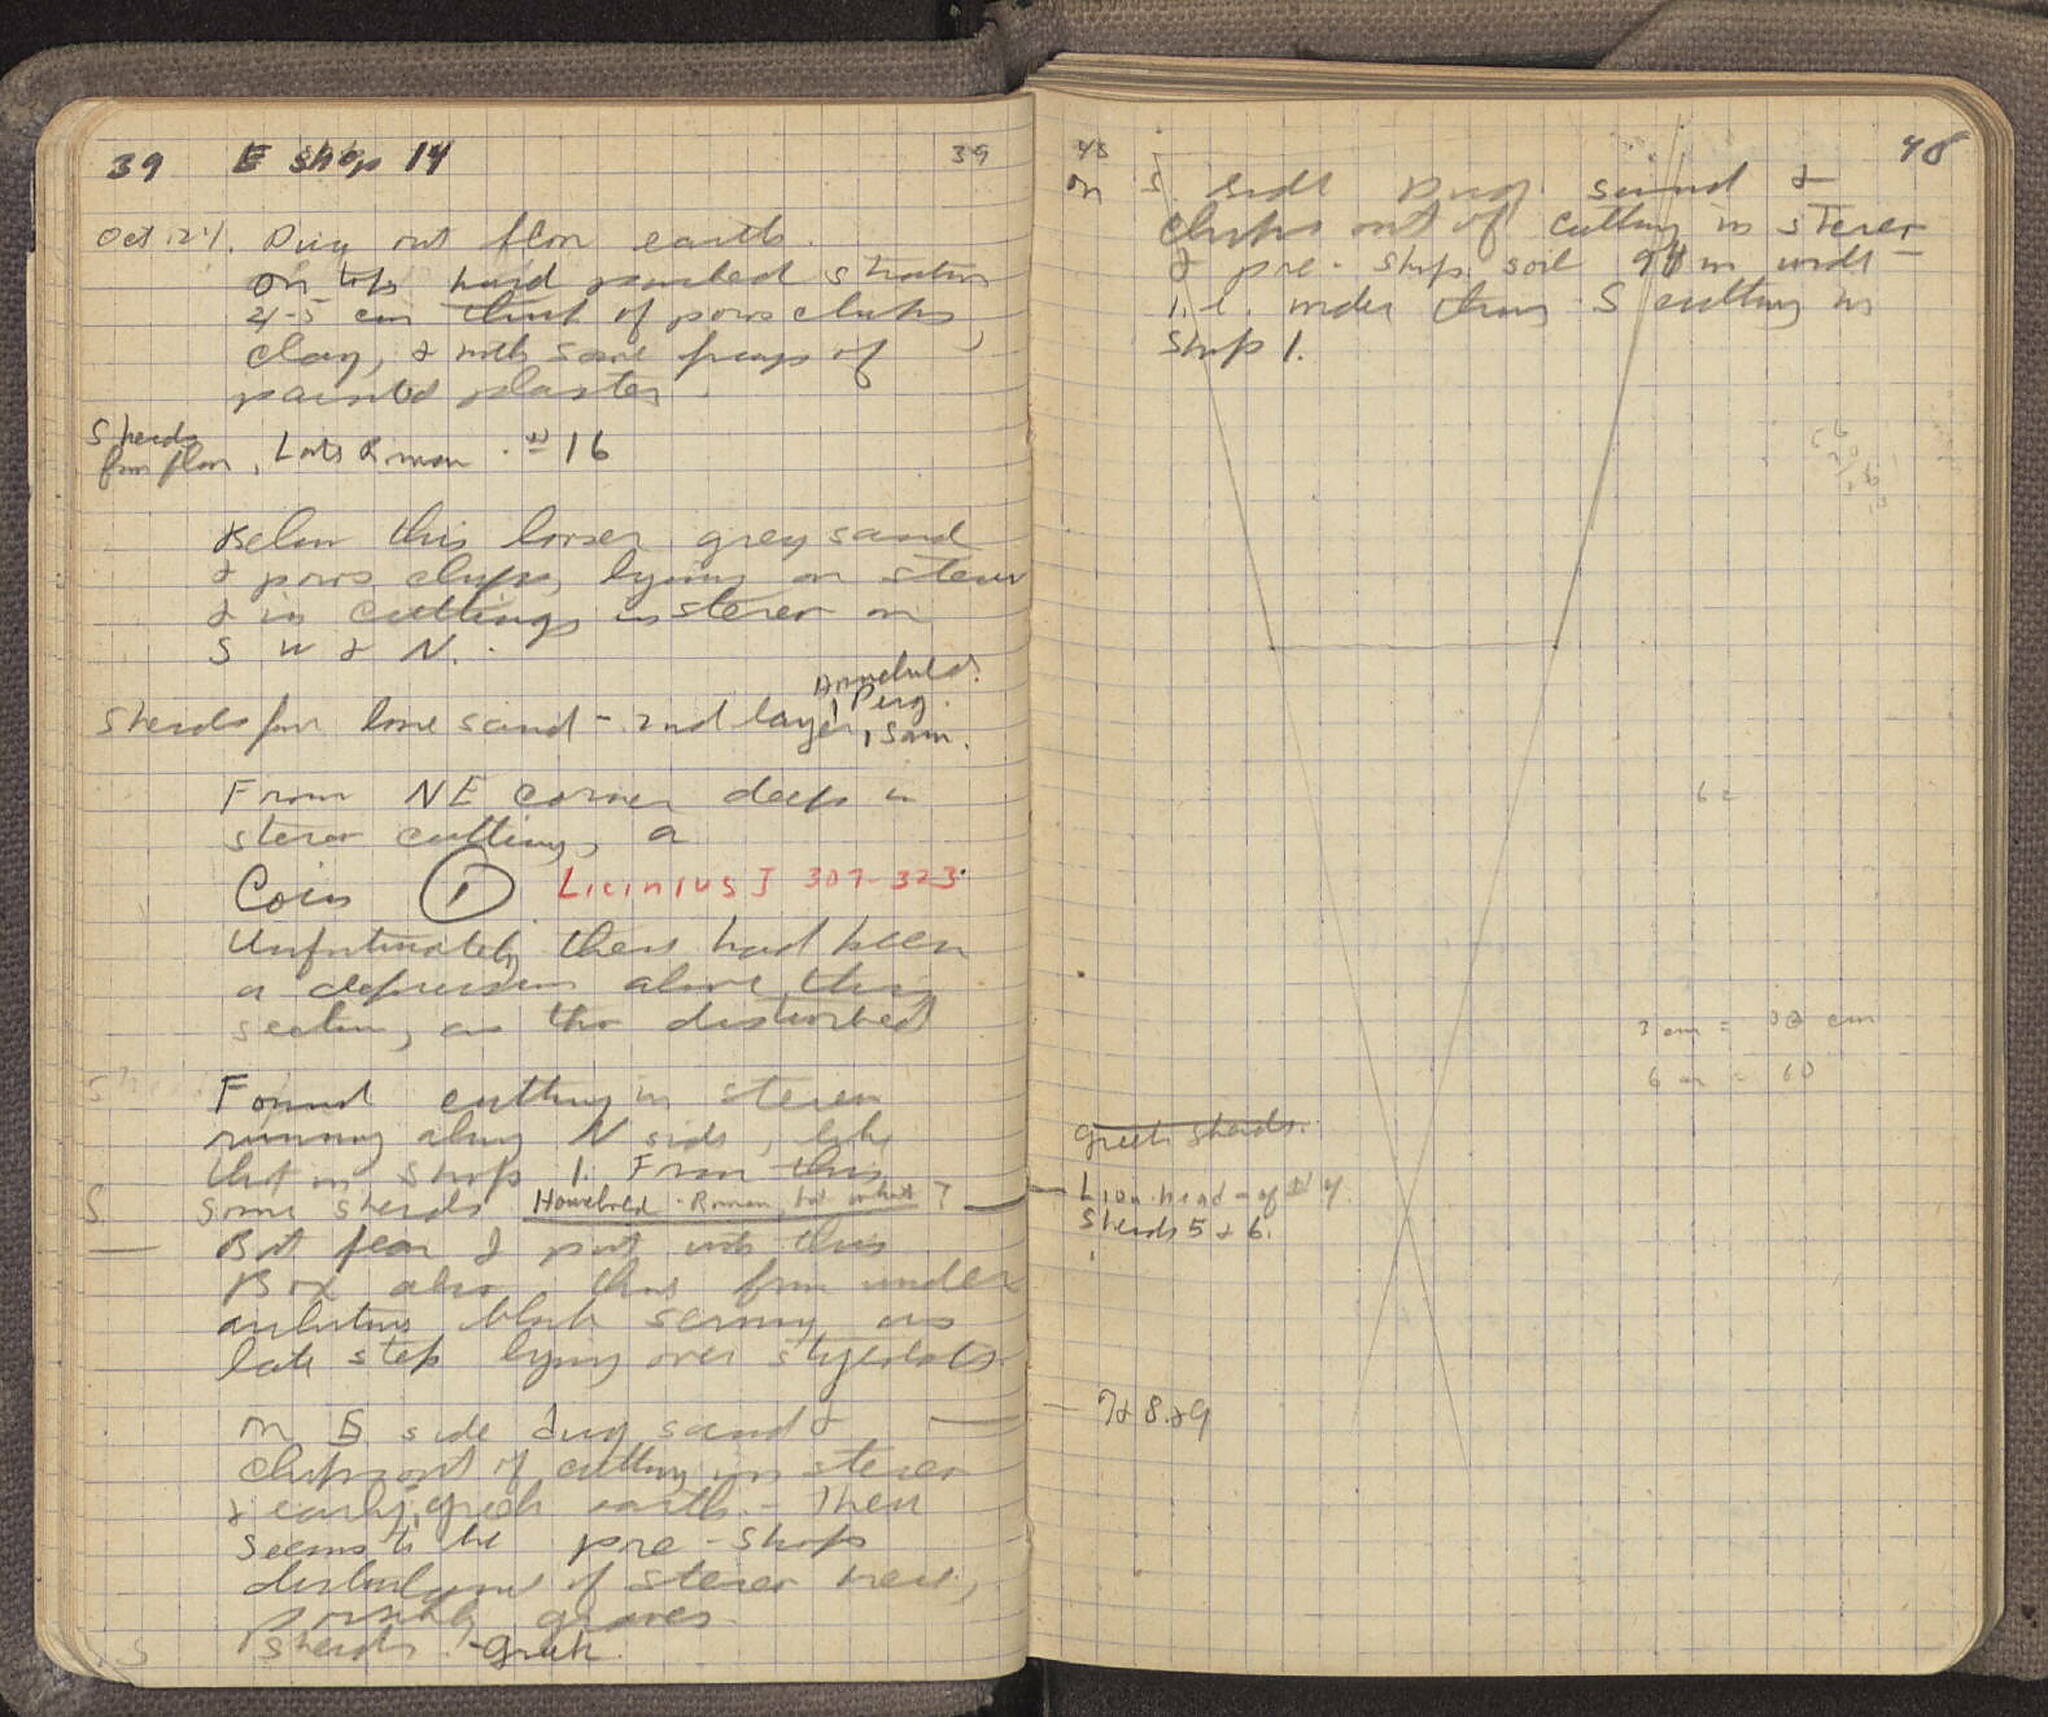 39 E Shop 14 39
Oct 24. Dug out floor earth.
On top hard pounded stratum
4-5 cm thick of poros chips,
clay, & with some frags of
painted plaster.
Sherds
from floor, Late Roman. # 16
Below this looser grey sand
& poros chips, lying on stereo
& in cuttings in stereo on
S W & N.
Household.
1 Perg.
Sherds from loose sand - 2nd layer, 1 Sam.
From NE corner deep in
stereo cutting, a
Coin 1 Licinius I 307-323.
Unfortunately there had been
a depression above this
section, as tho disturbed
Found cutting in stereo
running along N side, like
that in Shop 1. From this
S. some sherds Household - Roman, but what?
But fear I put into this
Box also those from under
architrave block serving as
late step lying over stylobate.
On E side dug sand &
chips out of cutting in stereo
& early Greek earth - There
seems to be pre-shop
disturbance of stereo here,
possibly graves
S sherds - Greek.
48 48
On S. side Dug sand &
chips out of cutting in stereo
& pre-shop soil 98 m wide -
i.e. wider than S cutting in
Shop 1.
6 =
3 cm = 30 cm
6 cm = 60
Greek sherds.
- Lion head - of # 4.
Sherds 5 & 6.
- 7 & 8 & 9